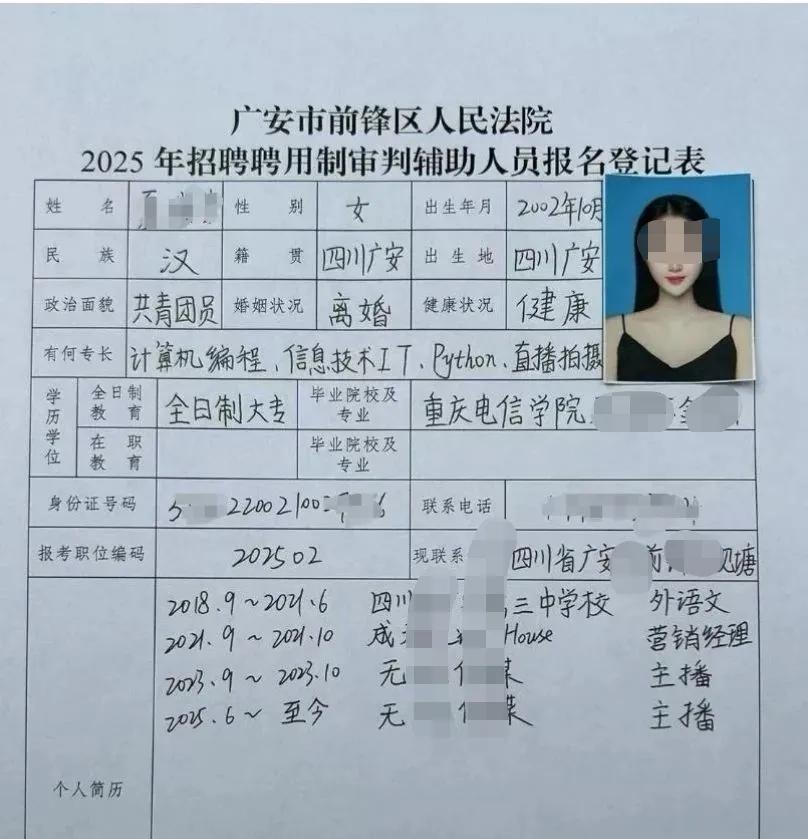 广安市前锋区人民法院
2025年招聘聘用制审判辅助人员报名登记表
姓名 性别 女 出生年月 2002年10月
民族 汉 籍贯 四川广安 出生地 四川广安
政治面貌 共青团员 婚姻状况 离婚 健康状况 健康
有何专长 计算机编程、信息技术IT、Python、直播拍摄
学历学位 全日制教育 全日制大专 毕业院校及专业 重庆电信学院
在职教育 毕业院校及专业
身份证号码 联系电话
报考职位编码 202502 现联系 四川省广安 前 观塘
个人简历
2018.9~2021.6 四川 三中学校 外语文
2021.9~2021.10 成 House 营销经理
2023.9~2023.10 无 主播
2025.6~至今 无 主播